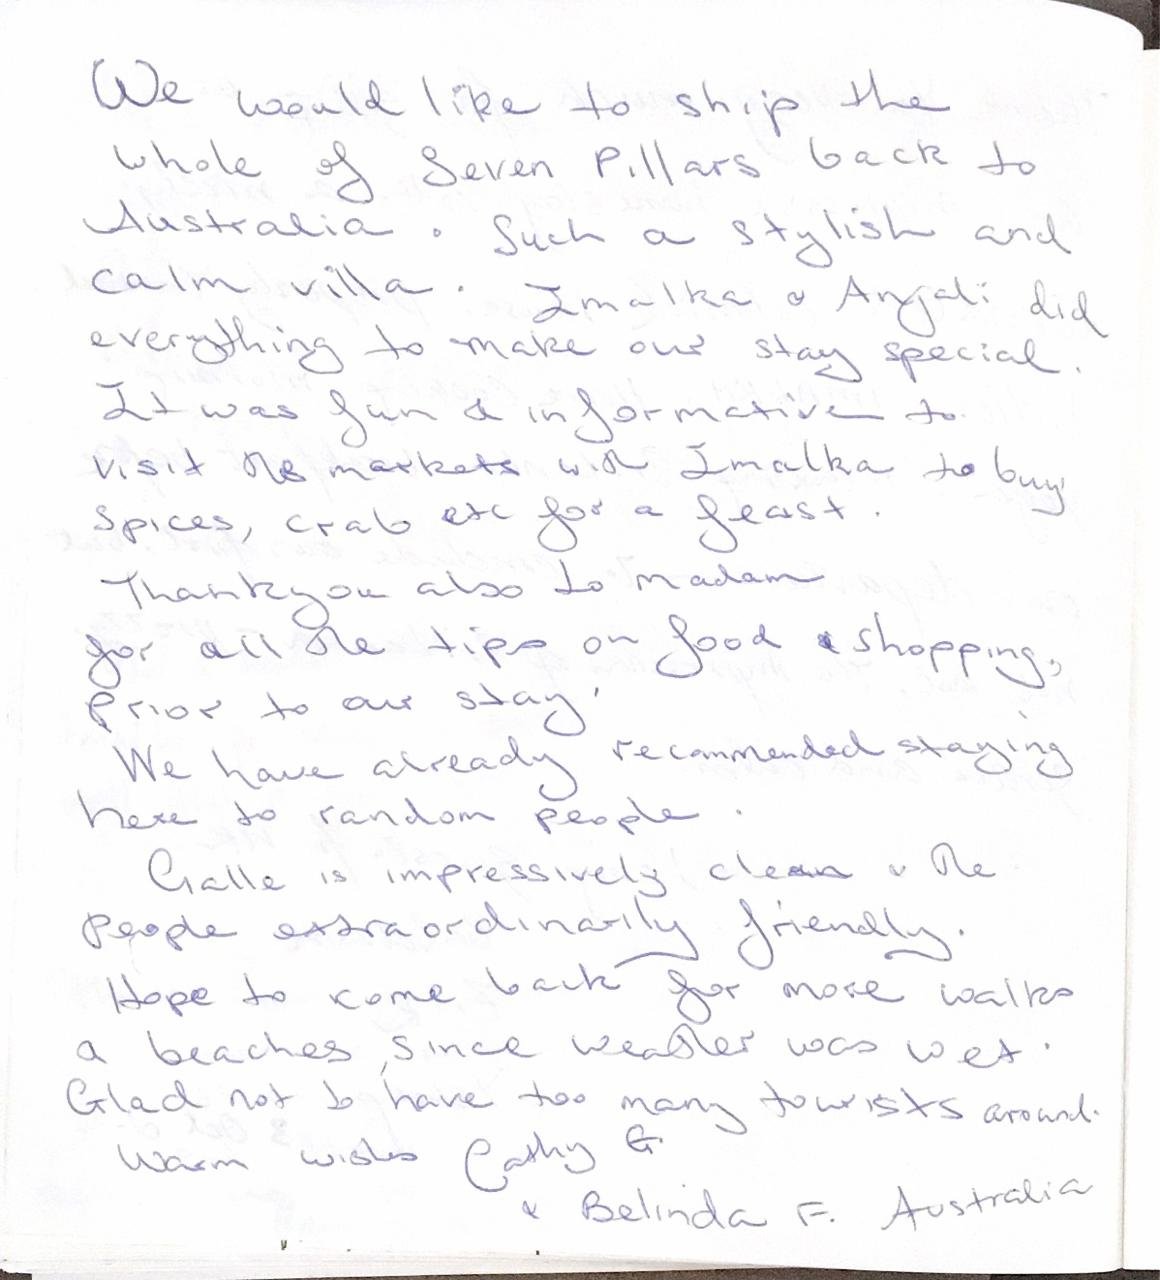 We would like to ship the
whole of Seven Pillars back to
Australia. Such a stylish and
calm villa. Imalka & Anjali did
everything to make our stay special.
It was fun & informative to
visit the markets with Imalka to buy
spices, crab etc for a feast.
Thankyou also to Madam
for all the tips on food & shopping,
prior to our stay.
We have already recommended staying
here to random people.
Galle is impressively clean & the
people extraordinarily friendly.
Hope to come back for more walks
& beaches, since weather was wet.
Glad not to have too many tourists around.
Warm wishes Cathy G
& Belinda F. Australia